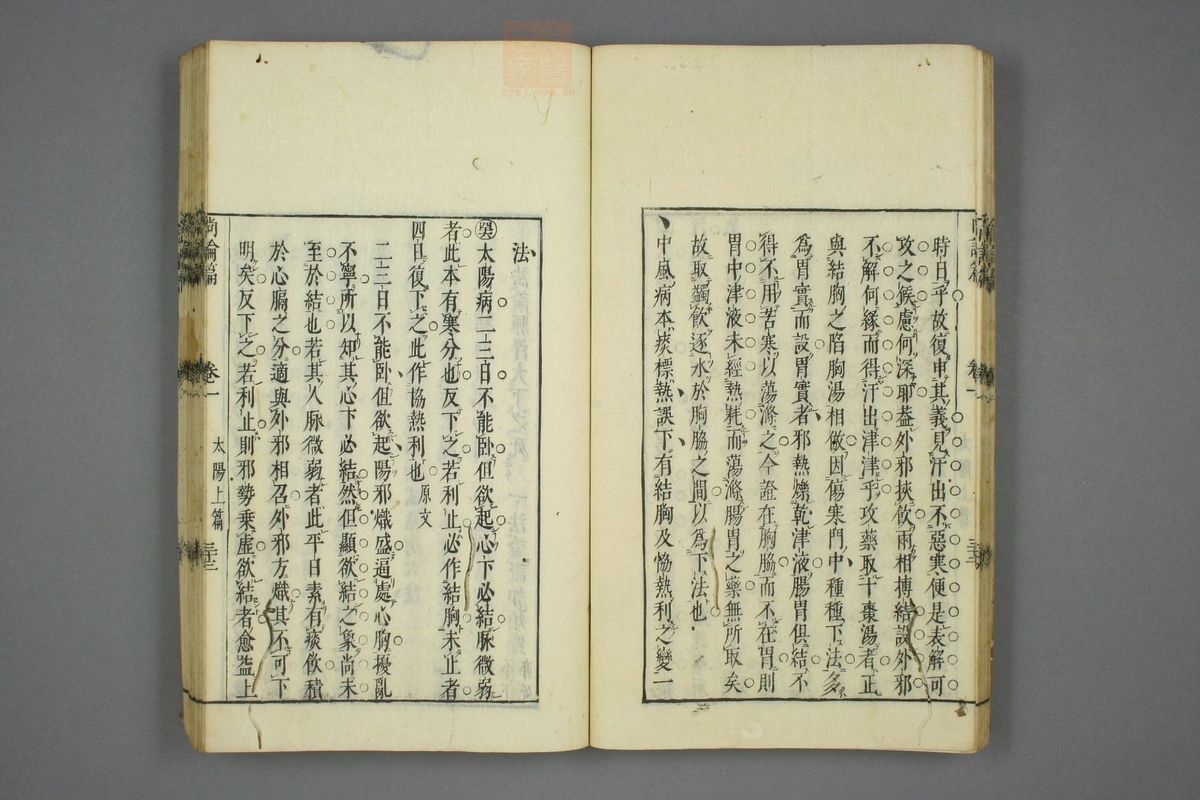 時日乎故復申其義見汗出不惡寒便是表解可
攻之候慮何深耶葢外邪挾飲兩相搏結設外邪
不解何緣而得汗出津津乎攻藥取十棗湯者正
與結胸之陷胸湯相倣因傷寒門中種種下法多
爲胃實而設胃實者邪熱爍乾津液腸胃俱結不
得不用苦寒以蕩滌之今證在胸脇而不在胃則
胃中津液未經熱耗而蕩滌腸胃之藥無所取矣
故取蠲飲逐水於胸脇之間以爲下法也
中風病本痰標熱誤下有結胸及恊熱利之變一
法
太陽病二三日不能臥但欲起心下必結脉微弱
者此本有寒分也反下之若利止必作結胸未止者
四日復下之此作恊熱利也 原文
二三日不能臥但欲起陽邪熾盛逼處心胸擾亂
不寧所以知其心下必結然但顯欲結之象尚未
至於結也若其人脉微弱者此平日素有痰飲積
於心膈之分適與外邪相召外邪方熾其不可下
明矣反下之若利止則邪勢乗虛欲結者愈益上
尚論篇 卷一 太陽上篇 三十三
zygj.com.cn